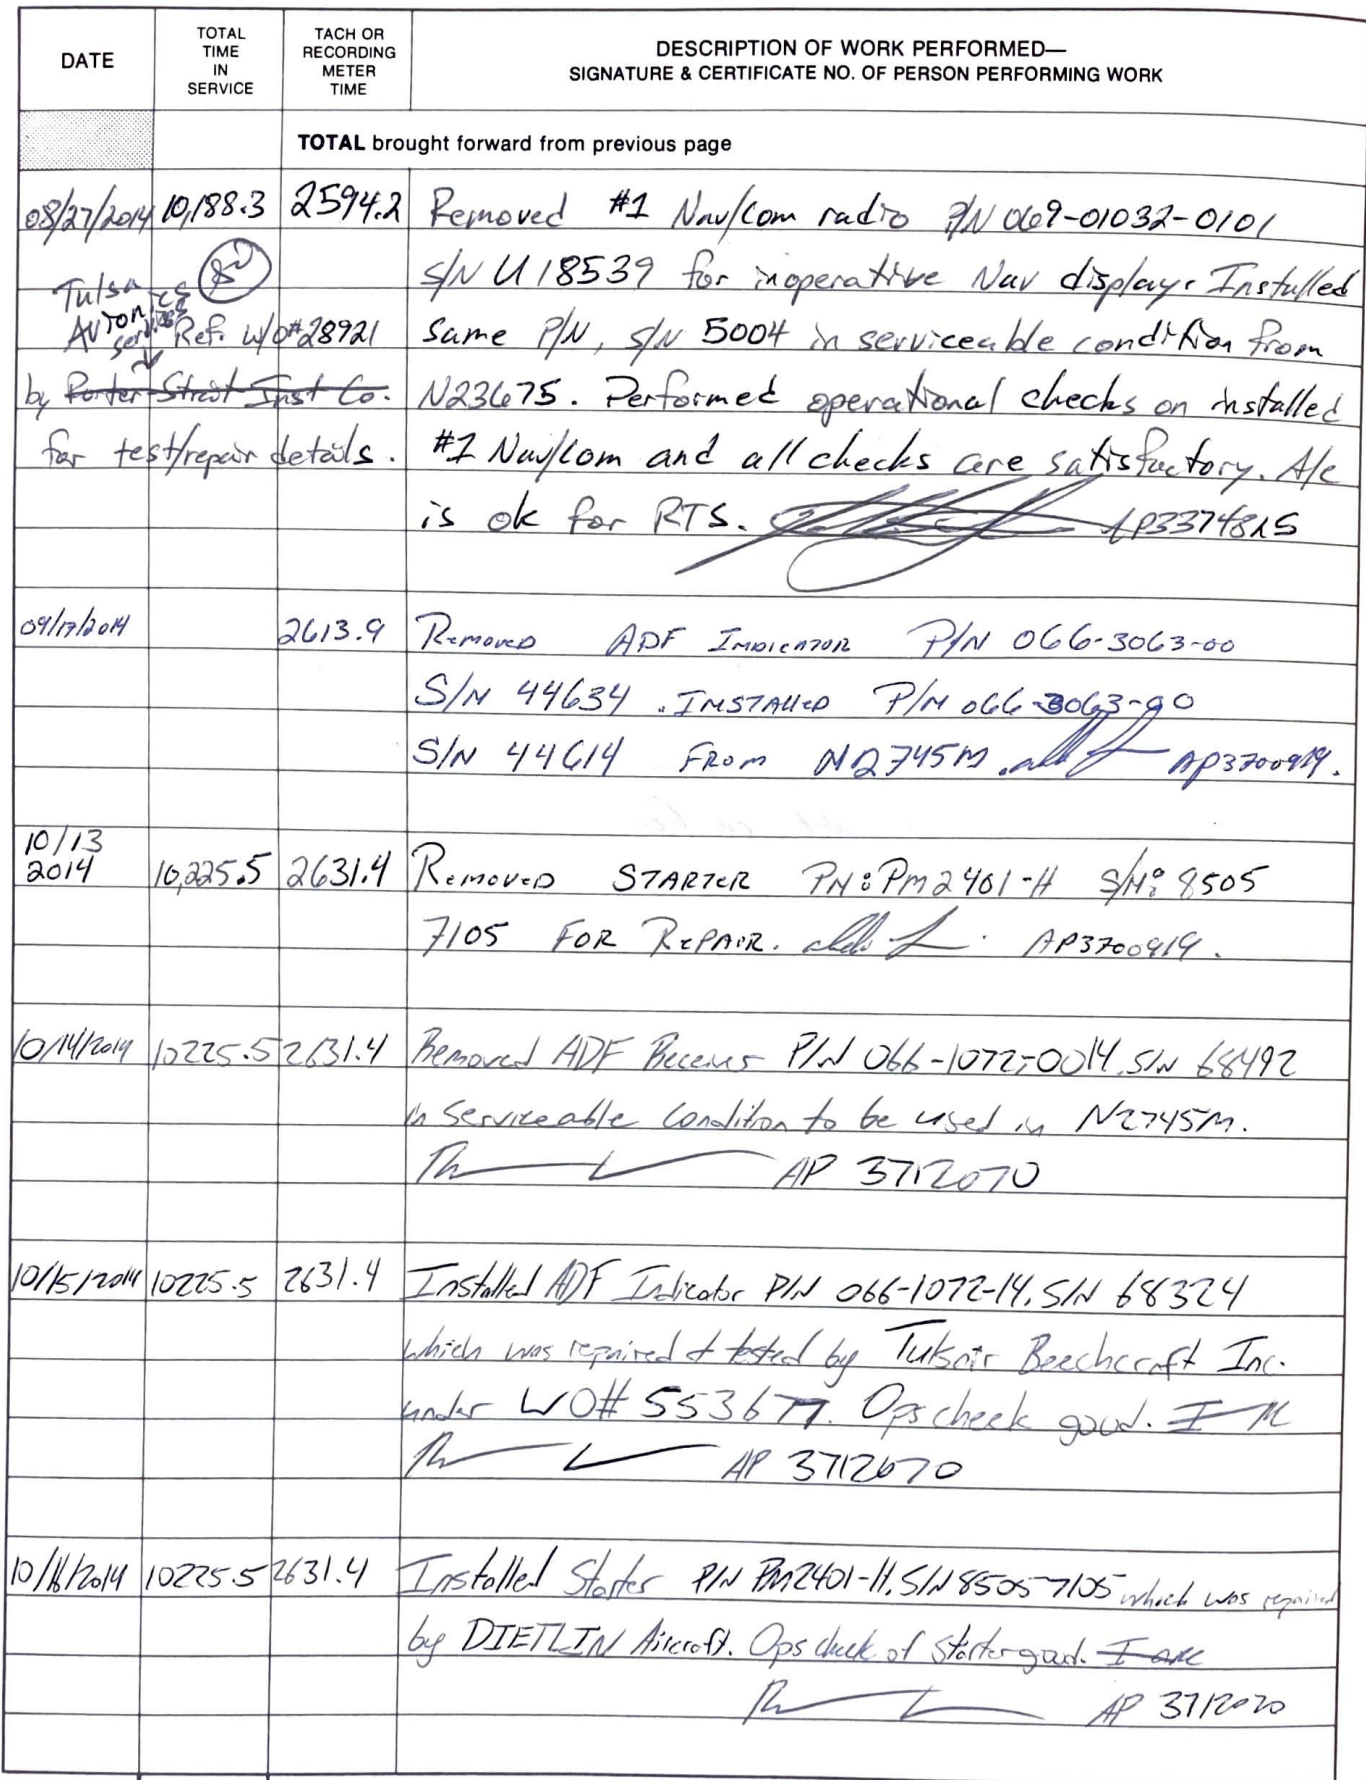 DATE
TOTAL
TIME
IN
SERVICE
TACH OR
RECORDING
METER
TIME
DESCRIPTION OF WORK PERFORMED—
SIGNATURE & CERTIFICATE NO. OF PERSON PERFORMING WORK
TOTAL brought forward from previous page
08/27/2014 10,188.3 2594.2 Removed #1 Nav/Com radio P/N 069-01032-0101
S/N U18539 for inoperative Nav display. Installed
same P/N, S/N 5004 in serviceable condition from
N23675. Performed operational checks on installed
#1 Nav/Com and all checks are satisfactory. A/c
is ok for RTS.
Tulsa
Avionics
services
Ref. w/o#28921
by Porter Strait Inst Co.
for test/repair details.
09/17/2014 2613.9 Removed ADF Indicator P/N 066-3063-00
S/N 44634. Installed P/N 066-3063-00
S/N 44614 From N2745M. AP3700919.
10/13
2014 10,225.5 2631.4 Removed STARTER PN: PM2401-H S/N: 8505
7105 FOR REPAIR. AP3700919.
10/14/2014 10225.5 2631.4 Removed ADF Receiver P/N 066-1072-0014, S/N 68492
in serviceable condition to be used in N2745M.
AP 3712070
10/15/2014 10225.5 2631.4 Installed ADF Indicator P/N 066-1072-14, S/N 68324
which was repaired & tested by Tulsair Beechcraft Inc.
under WO# 553677. Ops check good.
AP 3712070
10/16/2014 10225.5 2631.4 Installed Starter P/N PM2401-H, S/N 85057105 which was repaired
by DIETLIN Aircraft. Ops check of starter good.
AP 3712070